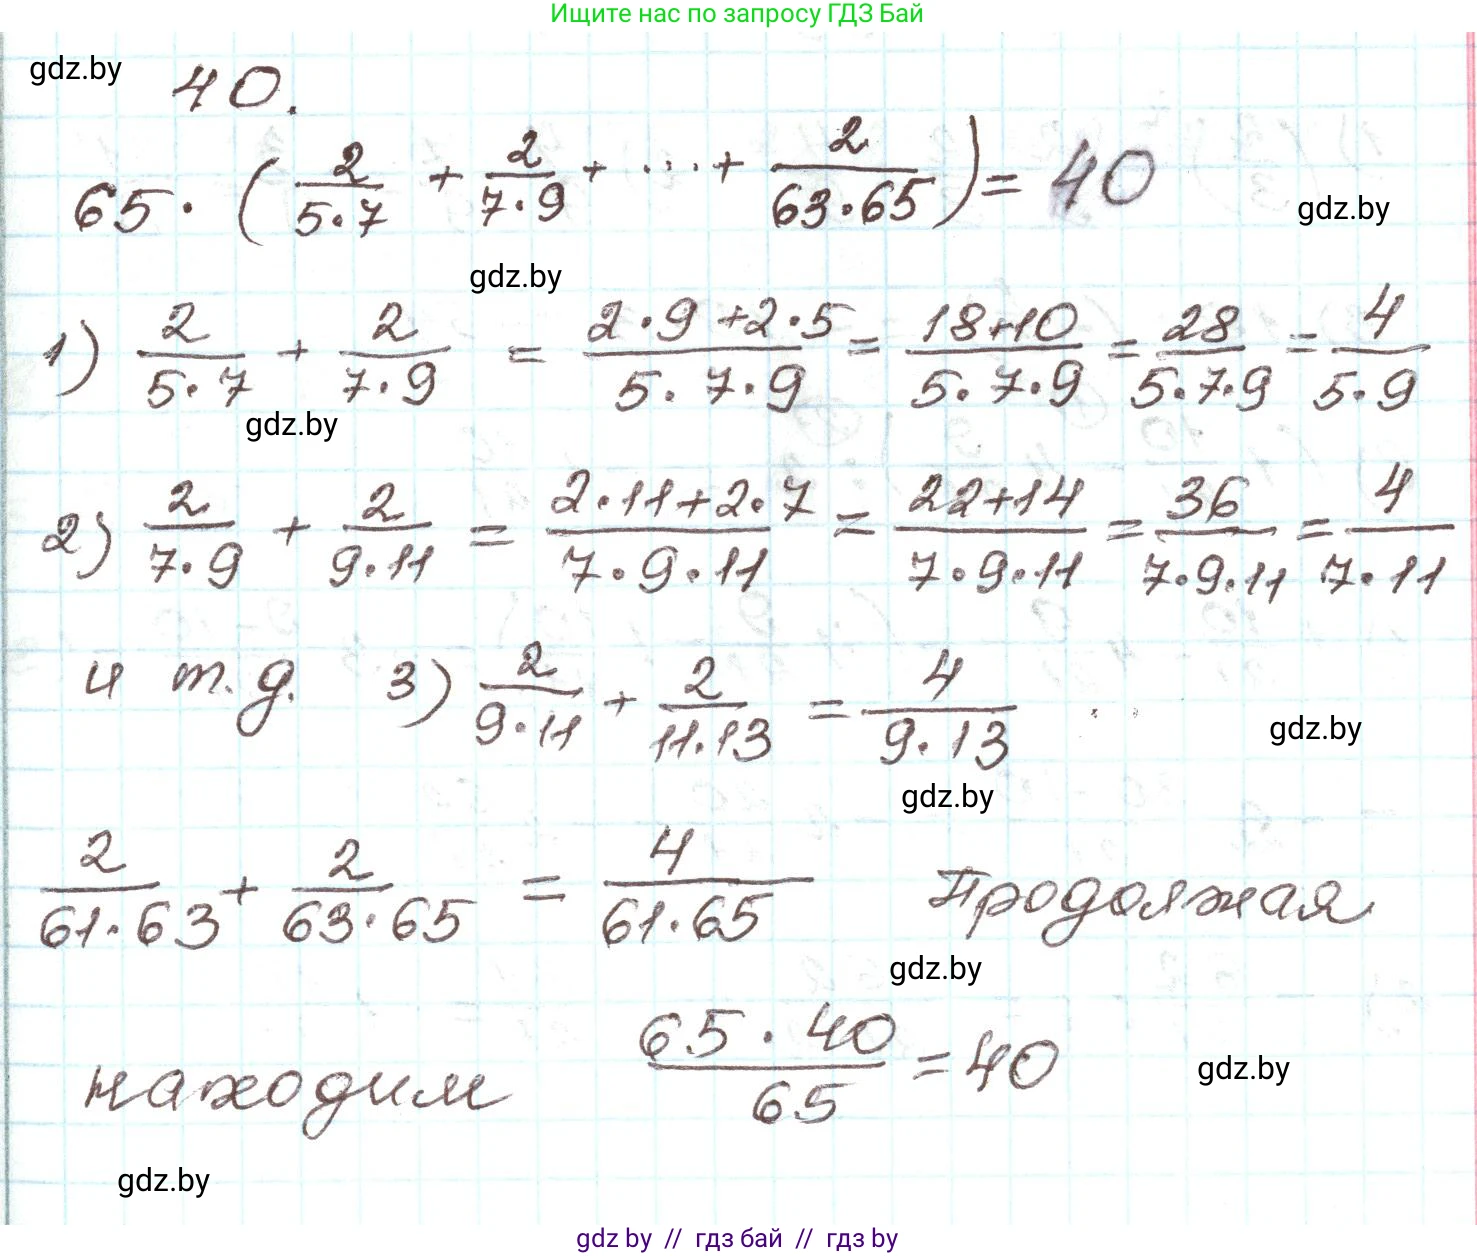 Ищите нас по запросу ГДЗ Бай
gdz.by
40.
65 · (2/(5·7) + 2/(7·9) + ... + 2/(63·65)) = 40
gdz.by
gdz.by
1) 2/(5·7) + 2/(7·9) = (2·9+2·5)/(5·7·9) = (18+10)/(5·7·9) = 28/(5·7·9) = 4/(5·9)
gdz.by
2) 2/(7·9) + 2/(9·11) = (2·11+2·7)/(7·9·11) = (22+14)/(7·9·11) = 36/(7·9·11) = 4/(7·11)
и т.д. 3) 2/(9·11) + 2/(11·13) = 4/(9·13)
gdz.by
gdz.by
2/(61·63) + 2/(63·65) = 4/(61·65) Продолжая
gdz.by
находим (65·40)/65 = 40
gdz.by
gdz.by
gdz by // гдз бай // гдз by